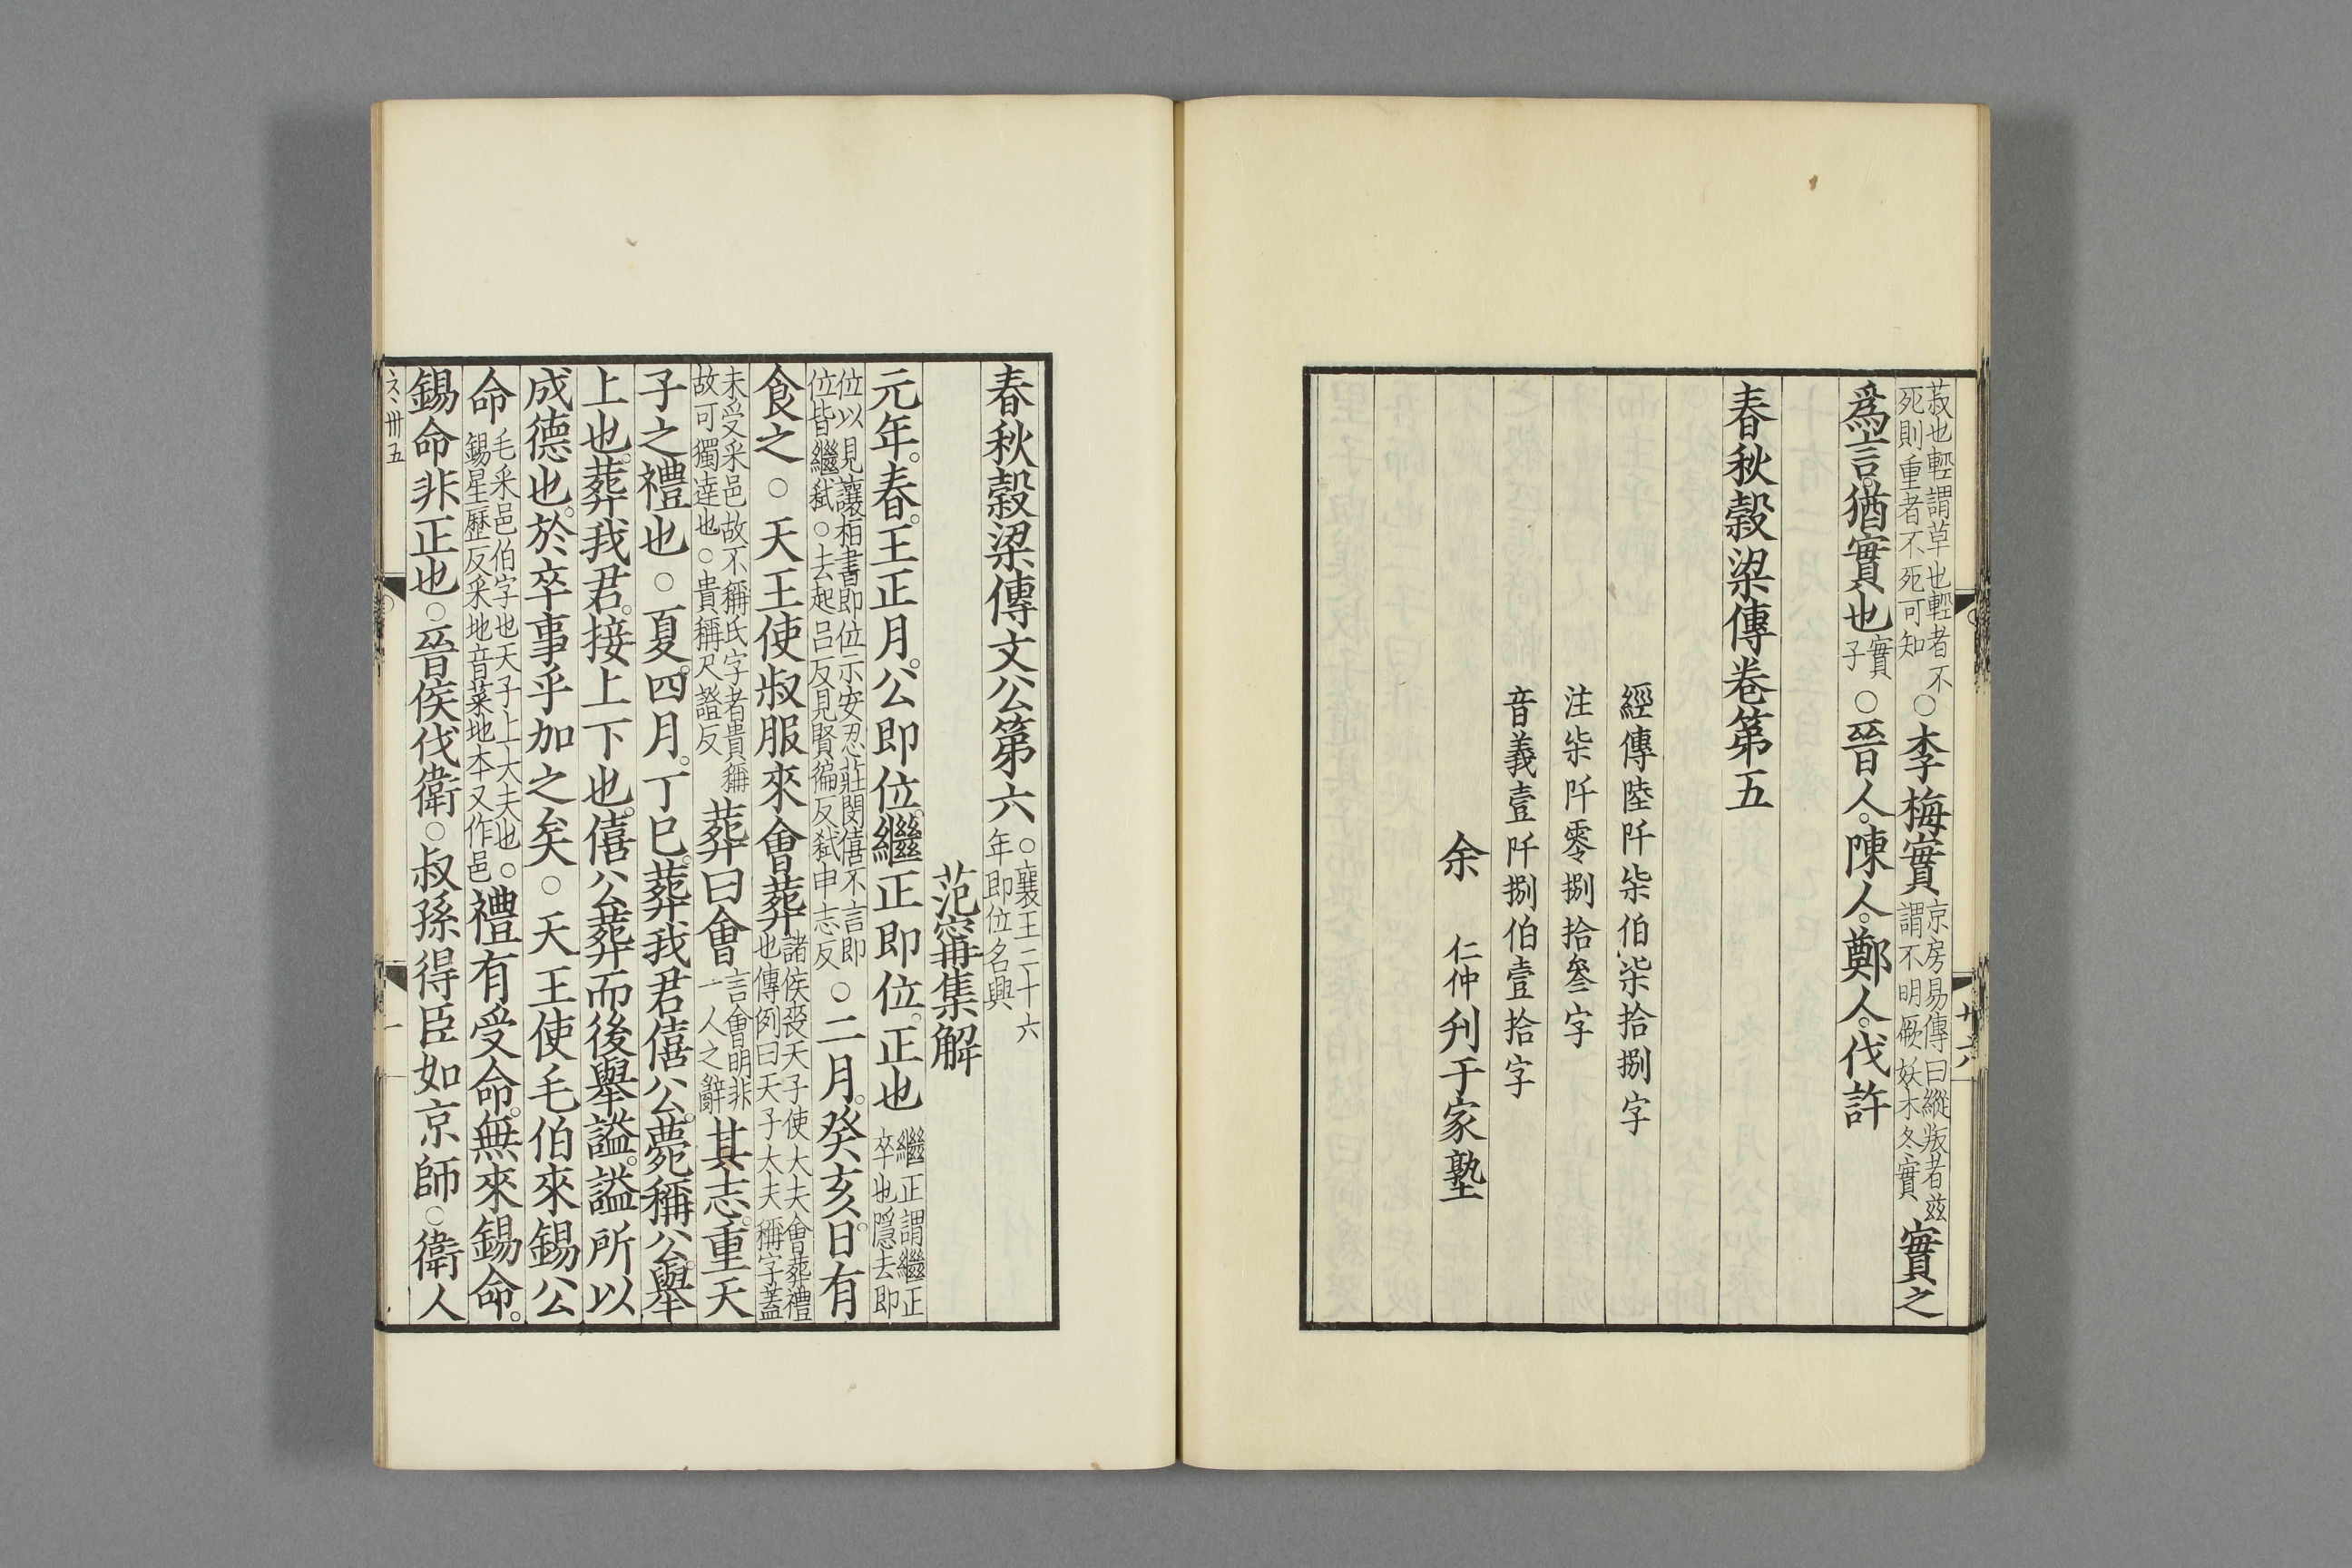 菽也輕謂草也輕者不死則重者不死可知○李梅實京房易傳曰縱叛者茲謂不明厥妖木冬實實之
爲言猶實也實子○晉人陳人鄭人伐許
春秋穀梁傳卷第五
經傳陸阡柒伯柒拾捌字
注柒阡零捌拾叄字
音義壹阡捌伯壹拾字
余仁仲刋于家塾
廿六
春秋穀梁傳文公第六○襄王二十六年即位名興
范甯集解
元年。春。王正月。公即位。繼正即位。正也繼正謂繼正卒也隱去即
位以見讓桓書即位示安忍莊閔僖不言即位皆繼弒○去起吕反見賢徧反弒申志反○二月。癸亥。日有
食之○天王使叔服來會葬諸侯喪天子使大夫會葬禮也傳例曰天子大夫稱字蓋
未受采邑故不稱氏字者貴稱故可獨達也○貴稱尺證反葬曰會言會明非一人之辭其志。重天
子之禮也○夏。四月。丁巳。葬我君僖公。薨稱公。舉
上也。葬我君。接上下也。僖公葬而後舉謚。謚所以
成德也。於卒事乎加之矣○天王使毛伯來錫公
命毛采邑伯字也天子上大夫也○錫星歷反采地音菜地本又作邑禮有受命。無來錫命。
錫命非正也○晉侯伐衛○叔孫得臣如京師○衛人
文 卅五
一